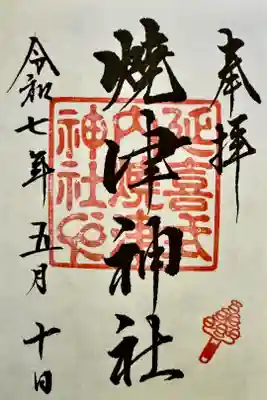 奉拝
焼津神社
延喜式
内焼津
神社
令和七年五月十日